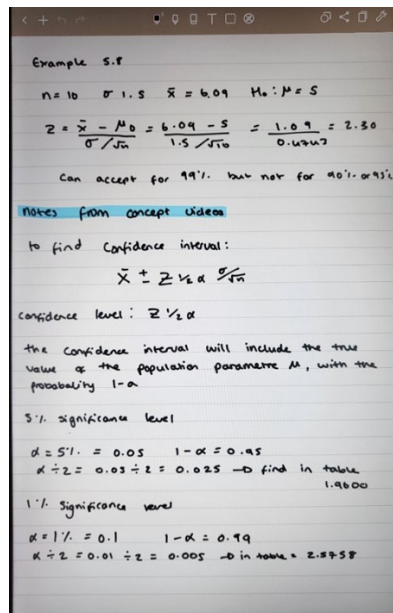 Example 5.8
n = 10 σ 1.5 x̄ = 6.09 H₀ : μ = 5
Z = x̄ - μ₀ / σ/√n = 6.09 - 5 / 1.5/√10 = 1.09 / 0.4743 = 2.30
Can accept for 99% but not for 90% or 95%
notes from concept videos
to find confidence interval:
x̄ ± Z ½ α σ/√n
confidence level : Z ½ α
the confidence interval will include the true
value of the population parametre μ, with the
probability 1-α
5% significance level
α = 5% = 0.05 1-α = 0.95
α ÷ 2 = 0.05 ÷ 2 = 0.025 → find in table
1.9600
1% significance level
α = 1% = 0.1 1-α = 0.99
α ÷ 2 = 0.01 ÷ 2 = 0.005 → in table = 2.5758